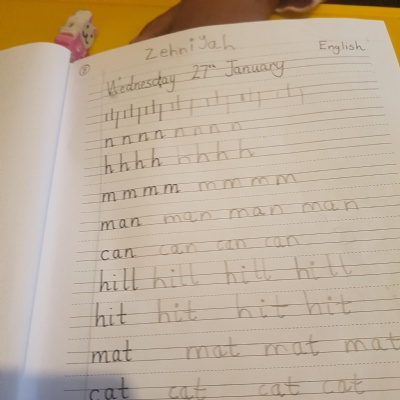 Zehniyah
English
Wednesday 27th January
n n n n n n n n
h h h h h h h h
m m m m m m m m
man man man man
can can can can
hill hill hill hill
hit hit hit hit
mat mat mat mat
cat cat cat cat